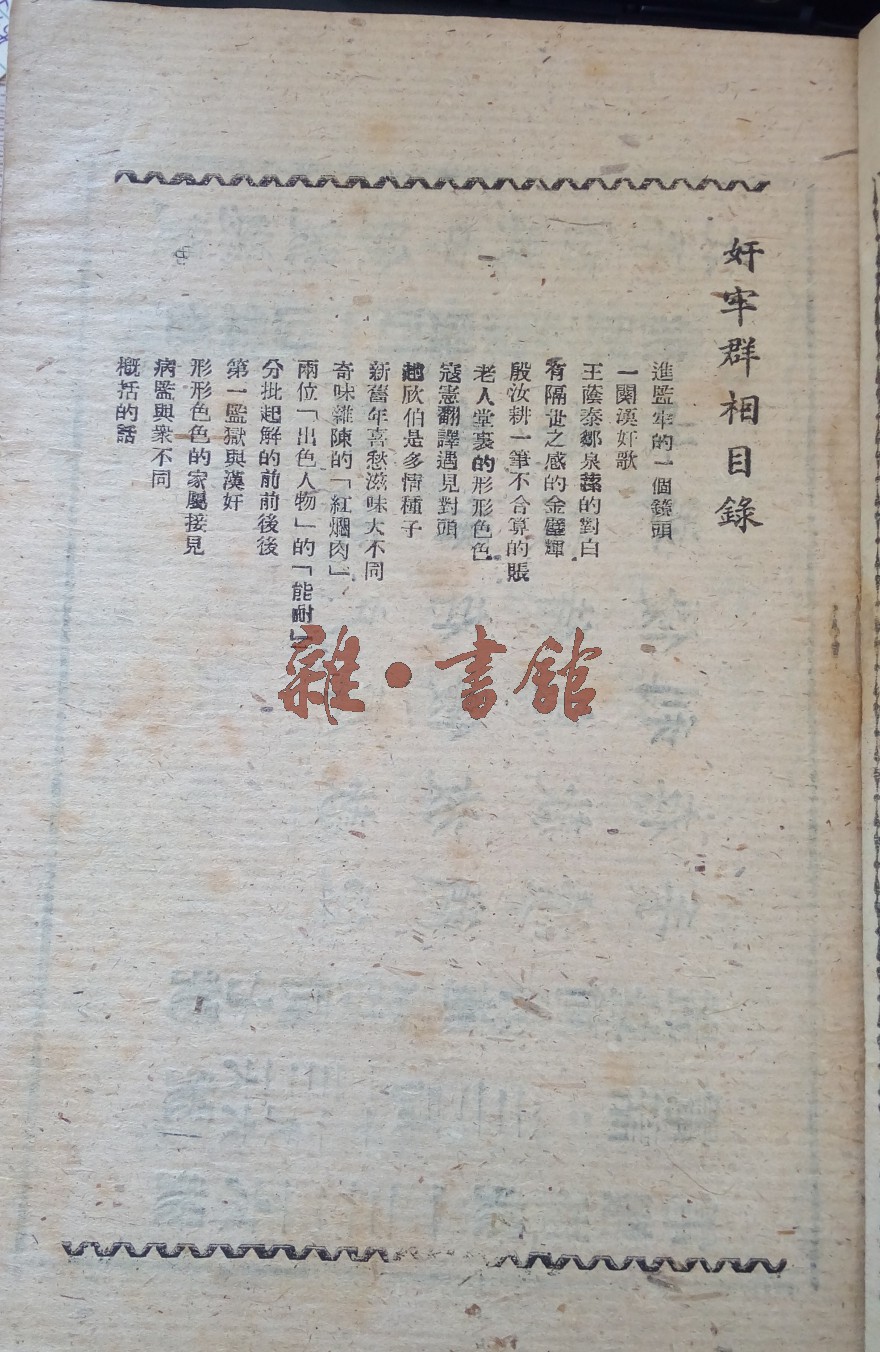 奸牢群相目錄
進監牢的一個鏡頭
一闋漢奸歌
王蔭泰鄒泉蓀的對白
有隔世之感的金璧輝
殷汝耕一筆不合算的賬
老人堂裏的形形色色
寇憲翻譯遇見對頭
趙欣伯是多情種子
新舊年喜愁滋味大不同
奇味雜陳的「紅燜肉」
兩位「出色人物」的「能耐」
分批起解的前前後後
第一監獄與漢奸
形形色色的家屬接見
病監與衆不同
概括的話
雜·書館